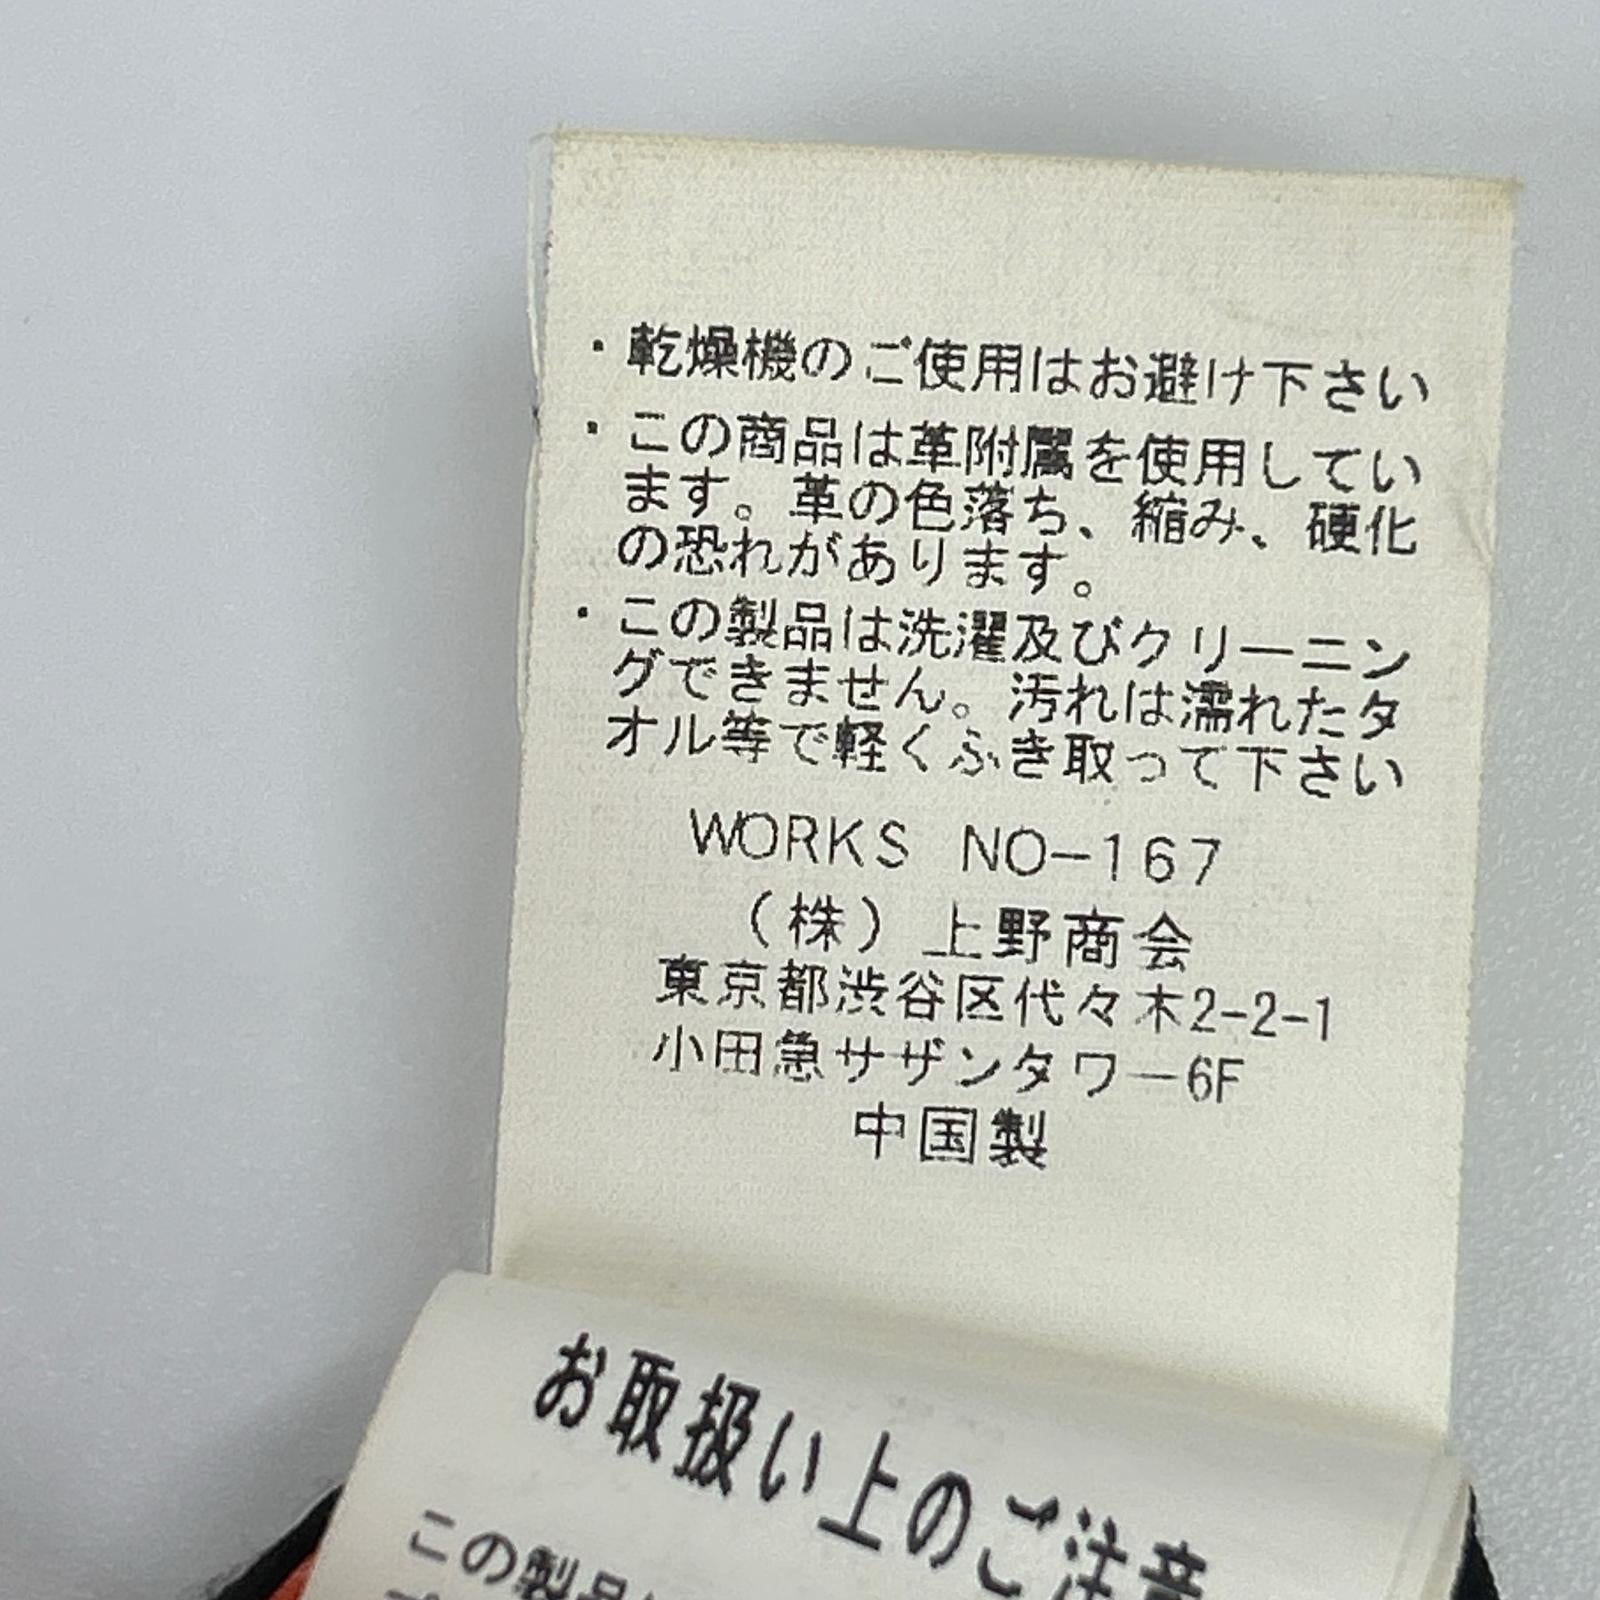 ・乾燥機のご使用はお避け下さい
・この商品は革附属を使用してい
ます。革の色落ち、縮み、硬化
の恐れがあります。
・この製品は洗濯及びクリーニン
グできません。汚れは濡れたタ
オル等で軽くふき取って下さい
WORKS NO-167
(株)上野商会
東京都渋谷区代々木2-2-1
小田急サザンタワー6F
中国製
お取扱い上のご注意
この製品